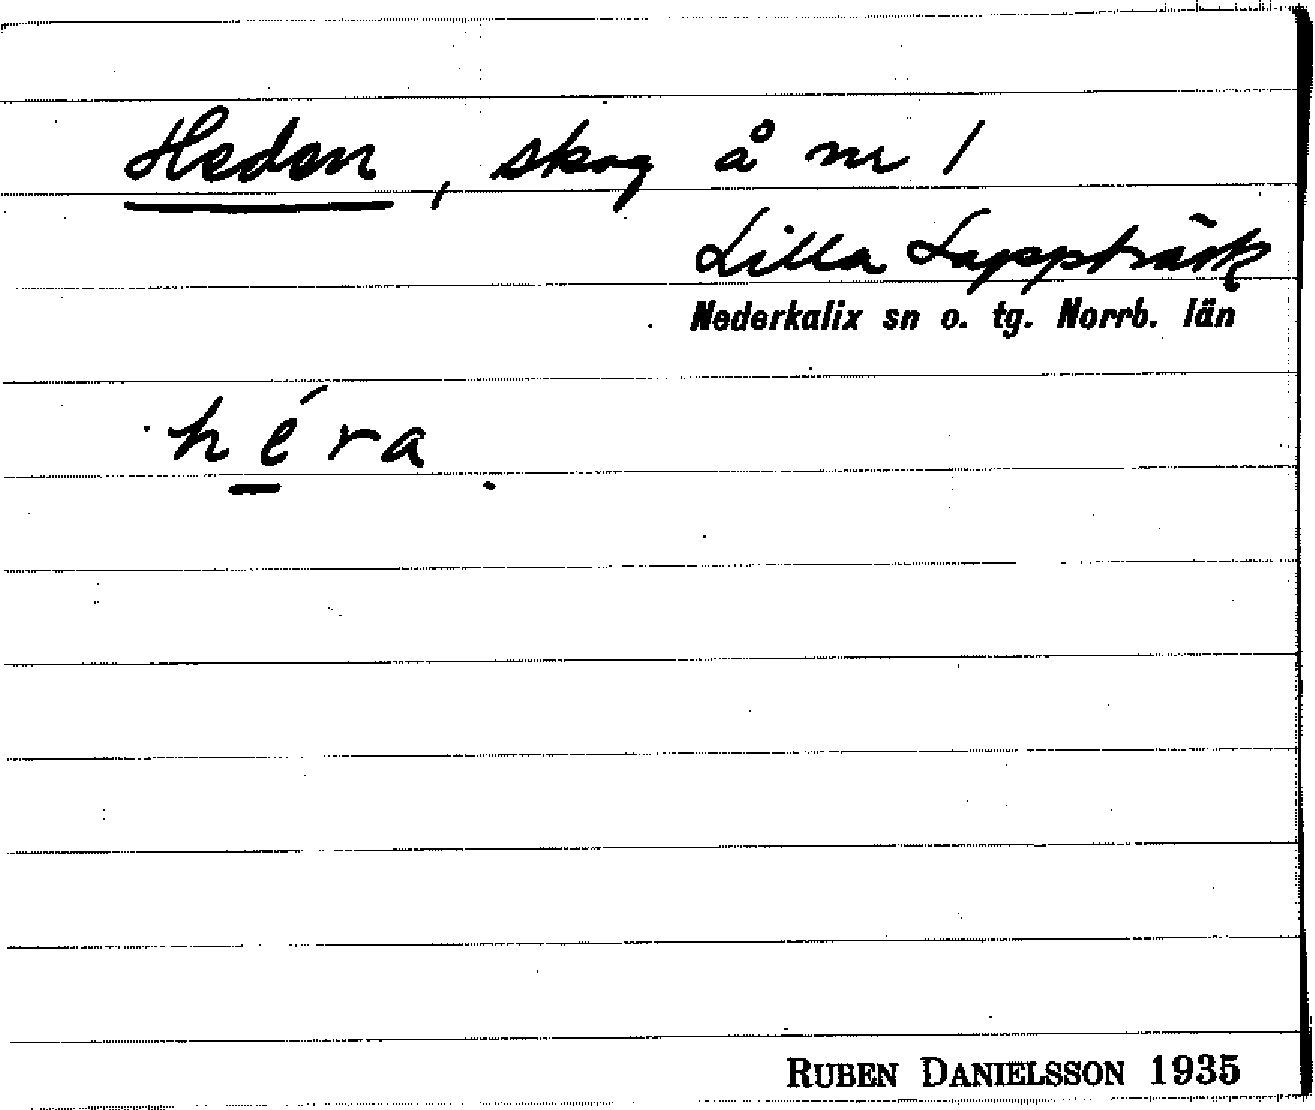 Heden, skog å nr 1
Lilla Lappträsk
Nederkalix sn o. tg. Norrb. län
héra
RUBEN DANIELSSON 1935